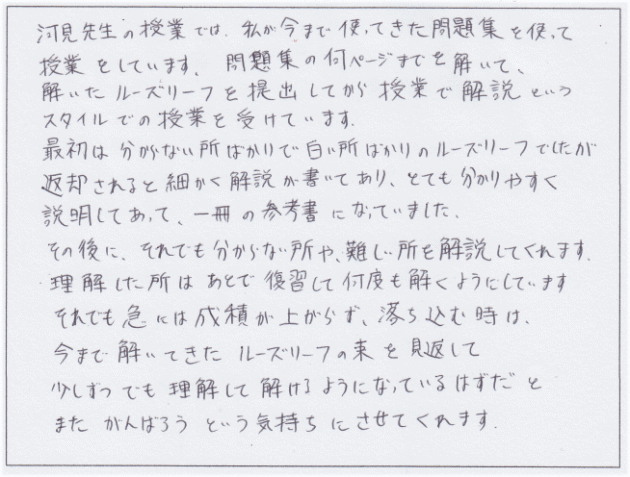 河見先生の授業では、私が今まで使ってきた問題集を使って
授業をしています。問題集の何ページまでを解いて、
解いたルーズリーフを提出してから授業で解説という
スタイルでの授業を受けています。
最初は分からない所ばかりで白い所ばかりのルーズリーフでしたが
返却されると細かく解説が書いてあり、とても分かりやすく
説明してあって、一冊の参考書になっていました。
その後に、それでも分からない所や、難しい所を解説してくれます。
理解した所はあとで復習して何度も解くようにしています
それでも急には成積が上がらず、落ち込む時は、
今まで解いてきたルーズリーフの束を見返して
少しずつでも理解して解けるようになっているはずだと
またがんばろうという気持ちにさせてくれます。